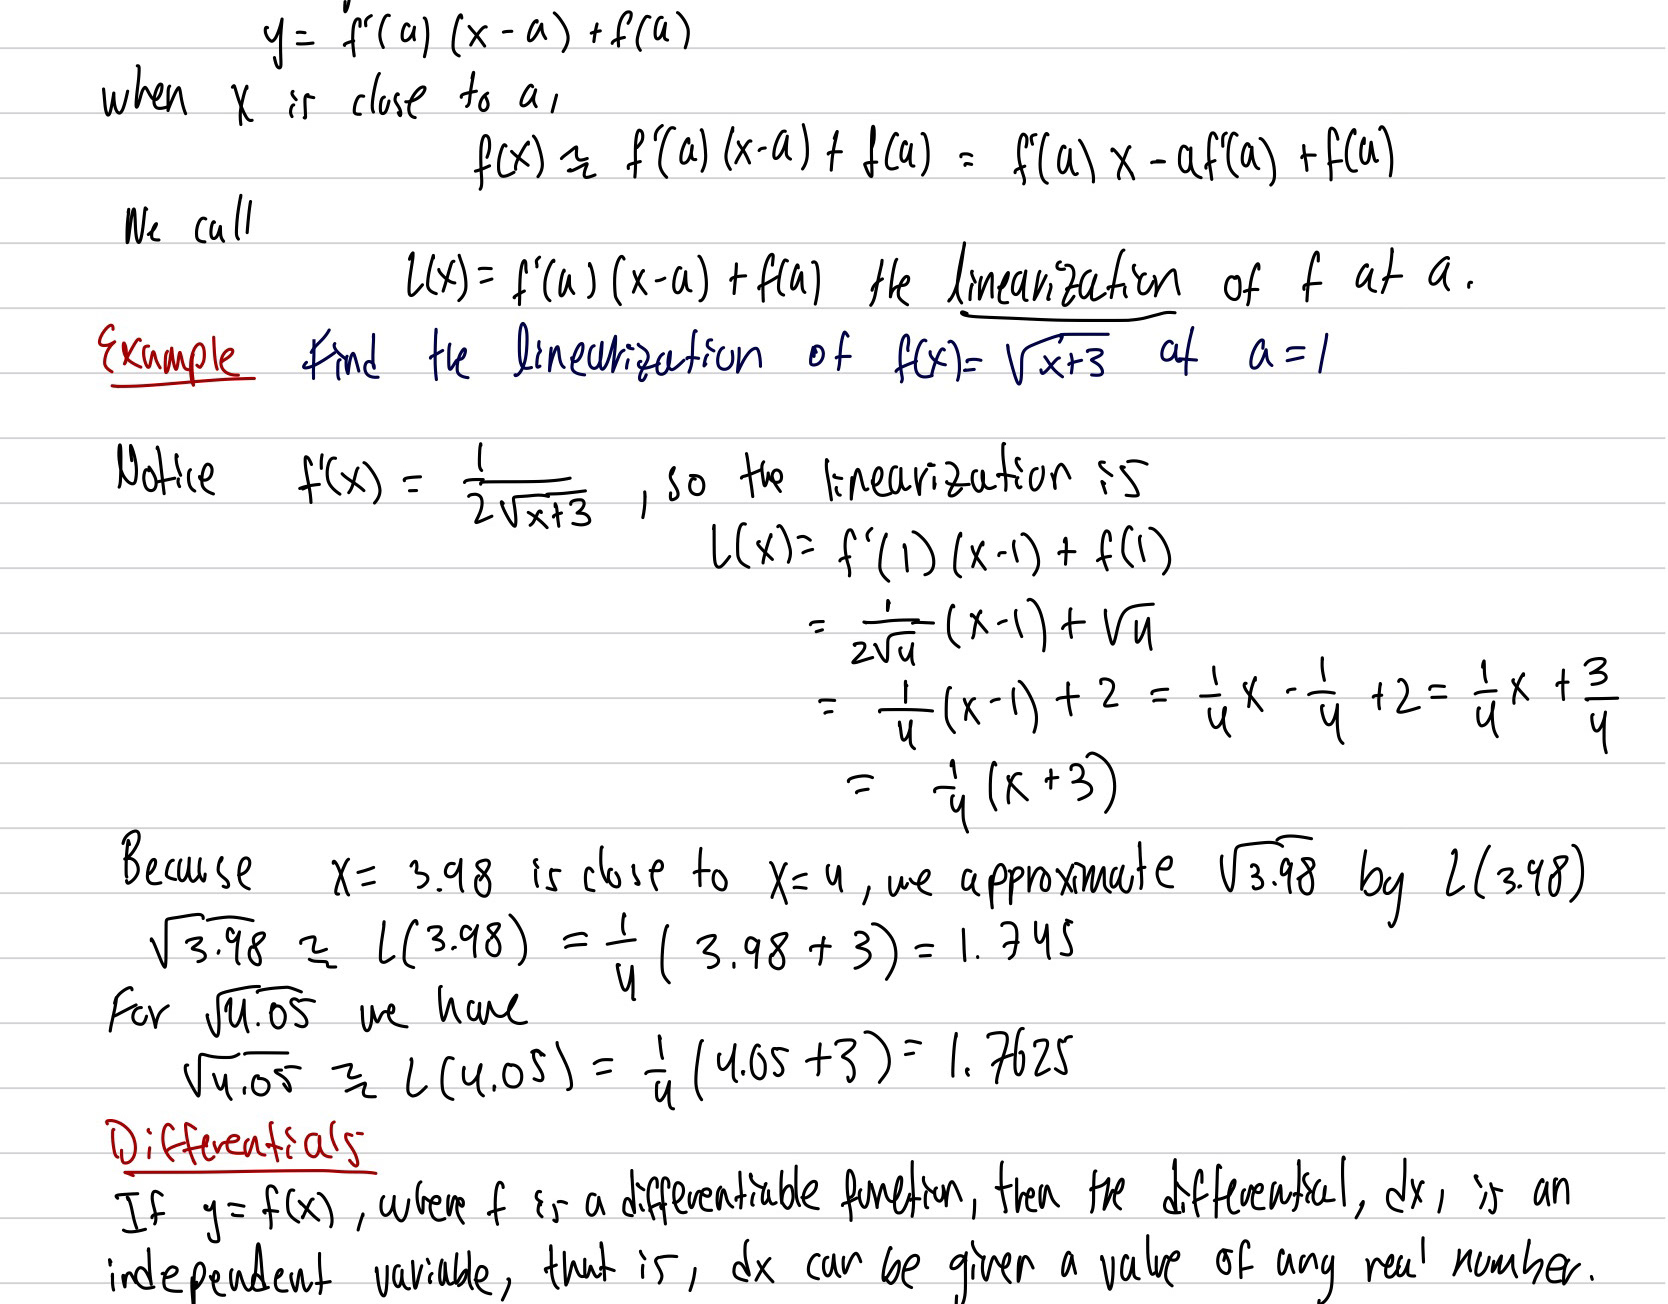 y = f'(a) (x - a) + f(a)
when x is close to a,
f(x) ≈ f'(a) (x-a) + f(a) = f'(a) x - af'(a) + f(a)
We call
L(x) = f'(a) (x-a) + f(a) the linearization of f at a.
Example Find the linearization of f(x) = √(x+3) at a = 1
Notice f'(x) = 1/(2√(x+3)), so the linearization is
L(x) = f'(1) (x-1) + f(1)
= 1/(2√4) (x-1) + √4
= 1/4 (x-1) + 2 = 1/4 x - 1/4 + 2 = 1/4 x + 3/4
= 1/4 (x + 3)
Because x = 3.98 is close to x = 4, we approximate √3.98 by L(3.98)
√3.98 ≈ L(3.98) = 1/4 (3.98 + 3) = 1.745
For √4.05 we have
√4.05 ≈ L(4.05) = 1/4 (4.05 + 3) = 1.7625
Differentials
If y = f(x), where f is a differentiable function, then the differential, dx, is an
independent variable, that is, dx can be given a value of any real number.